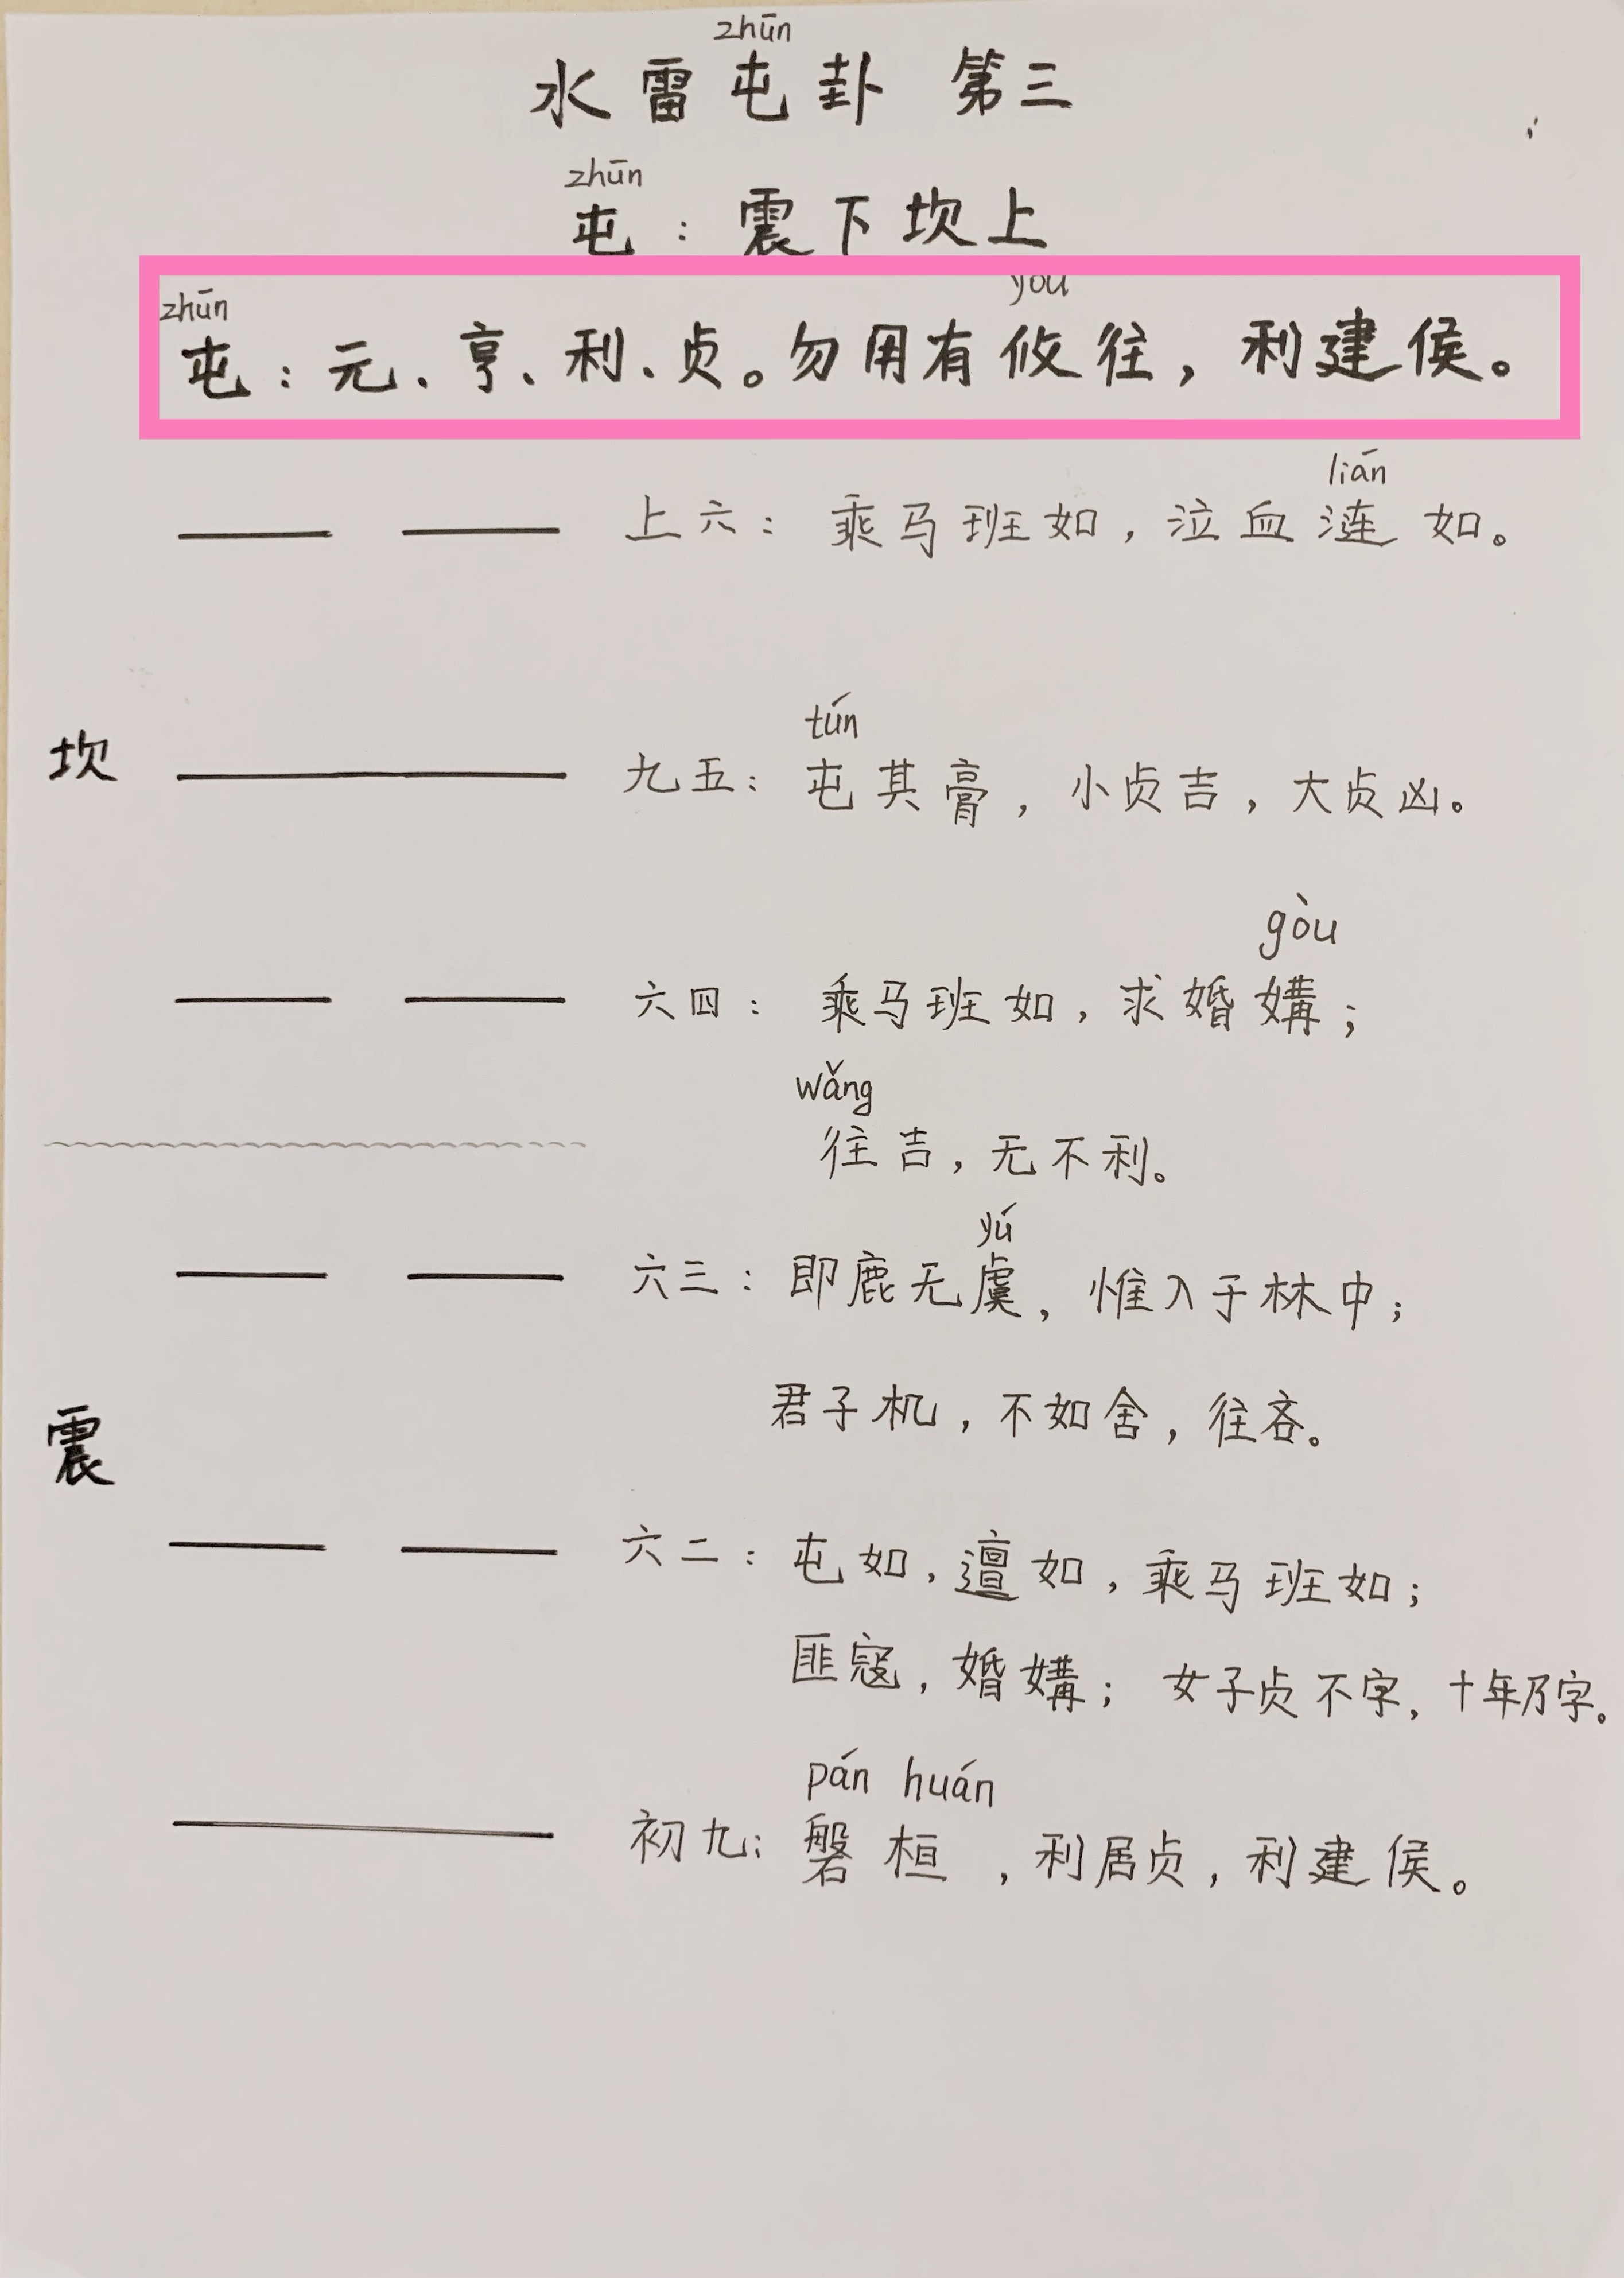 zhūn
水雷屯卦 第三
zhūn
屯：震下坎上
zhūn yōu
屯：元、亨、利、贞。勿用有攸往，利建侯。
lián
上六：乘马班如，泣血涟如。
tún
坎 九五：屯其膏，小贞吉，大贞凶。
gòu
六四：乘马班如，求婚媾；
wǎng
往吉，无不利。
yú
六三：即鹿无虞，惟入于林中；
君子机，不如舍，往吝。
震
六二：屯如，邅如，乘马班如；
匪寇，婚媾；女子贞不字，十年乃字。
pán huán
初九：磐桓，利居贞，利建侯。